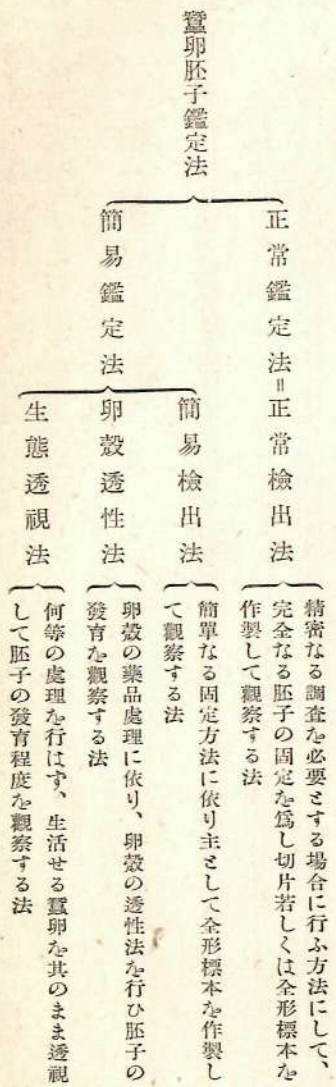 蠶卵胚子鑑定法
正常鑑定法=正常檢出法
精密なる調査を必要とする場合に行ふ方法にして、
完全なる胚子の固定を爲し切片若しくは全形標本を
作製して觀察する法
簡易鑑定法
簡易檢出法
簡單なる固定方法に依り主として全形標本を作製し
て觀察する法
卵殼透性法
卵殼の藥品處理に依り、卵殼の透性法を行ひ胚子の
發育を觀察する法
生態透視法
何等の處理を行はず、生活せる蠶卵を其のまま透視
して胚子の發育程度を觀察する法